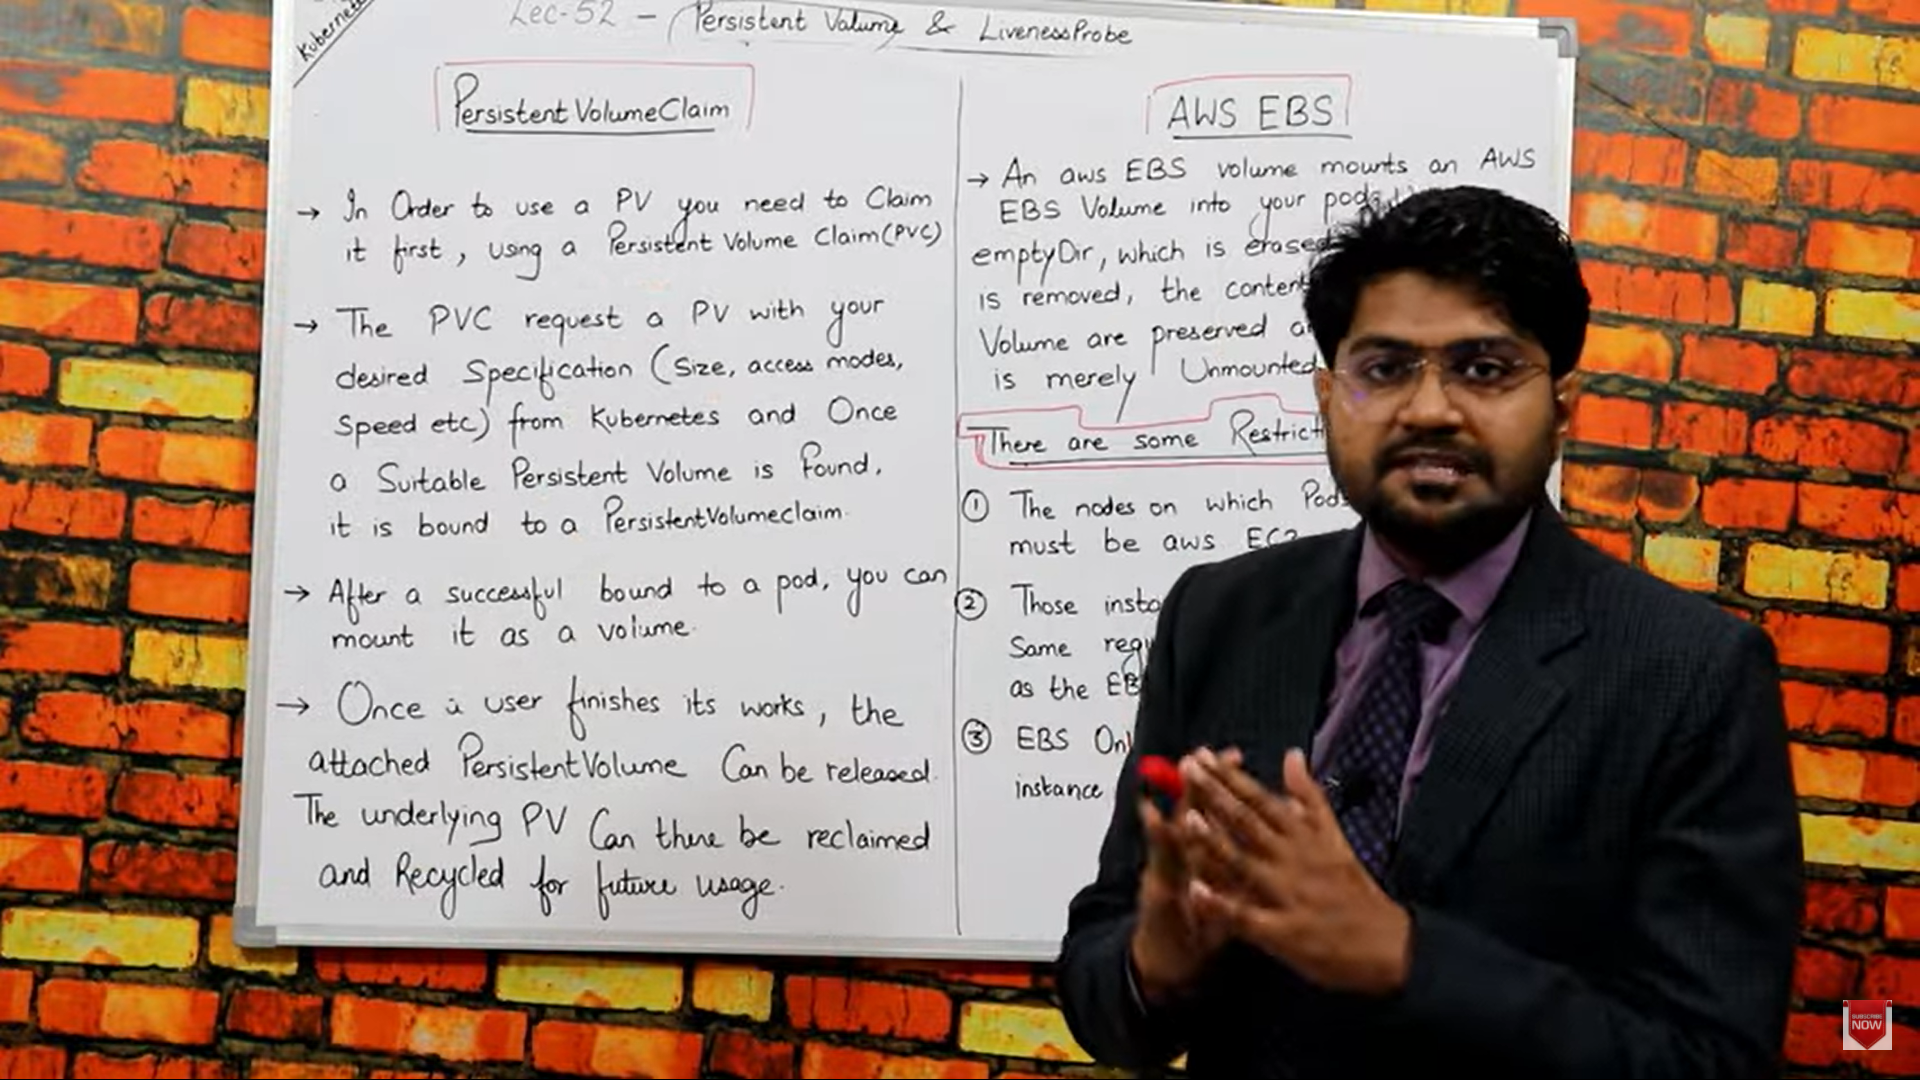 Kubernetes
Lec-52 - Persistent Volume & LivenessProbe
PersistentVolumeClaim
→ In Order to use a PV you need to Claim
it first, using a Persistent Volume Claim(PVC)
→ The PVC request a PV with your
desired Specification (Size, access modes,
Speed etc) from Kubernetes and Once
a Suitable Persistent Volume is Found,
it is bound to a PersistentVolumeclaim.
→ After a successful bound to a pod, you can
mount it as a volume.
→ Once a user finishes its works, the
attached PersistentVolume Can be released.
The underlying PV Can there be reclaimed
and Recycled for future usage.
AWS EBS
→ An aws EBS volume mounts an AWS
EBS Volume into your pod
emptyDir, which is erased
is removed, the content
Volume are preserved
is merely Unmounted
There are some Restrict
① The nodes on which Pods
must be aws EC2
② Those insta
Same reg
as the EB
③ EBS Onl
instance
SUBSCRIBE
NOW